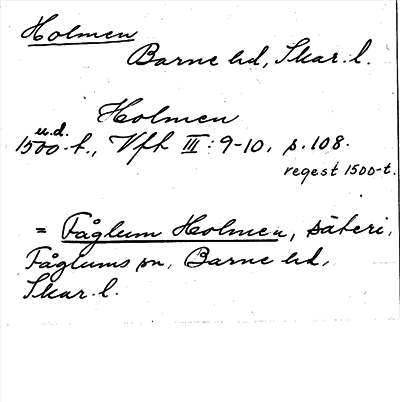 Holmen
Barne hd, Skar. l.
Holmen
u.d.
1500-t., Vft III: 9-10, s. 108.
regest 1500-t.
= Fåglum Holmen, säteri,
Fåglums sn, Barne hd,
Skar. l.